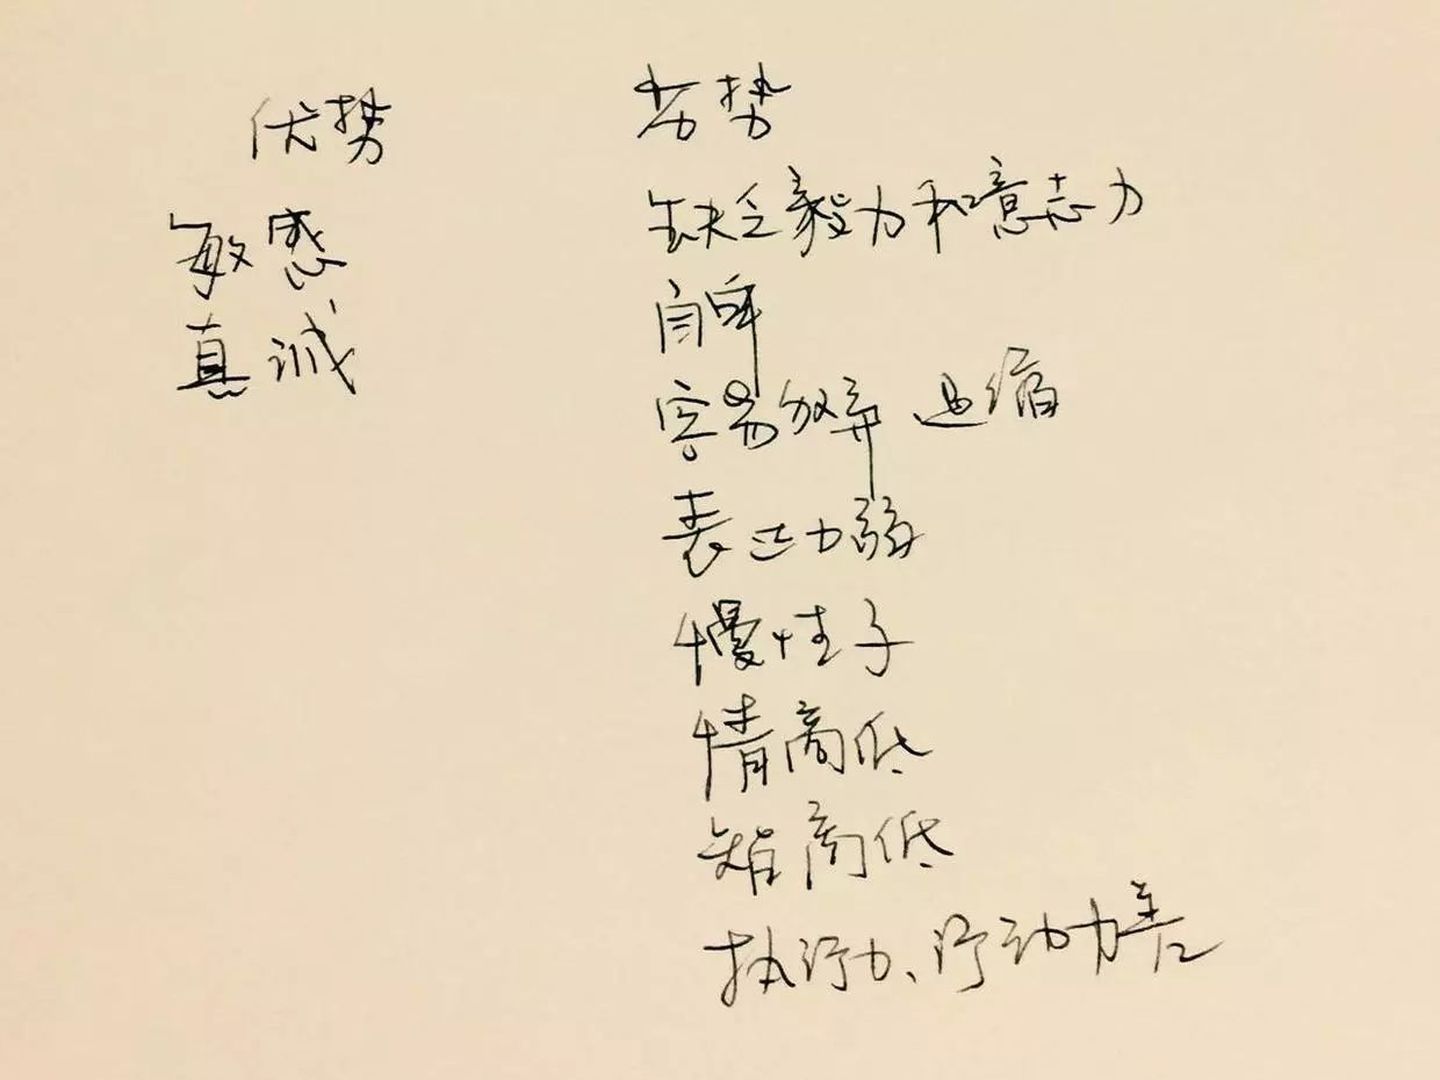 优势
敏感
真诚
劣势
缺乏毅力和意志力
自卑
容易放弃 退缩
表达力弱
慢性子
情商低
智商低
执行力、行动力差